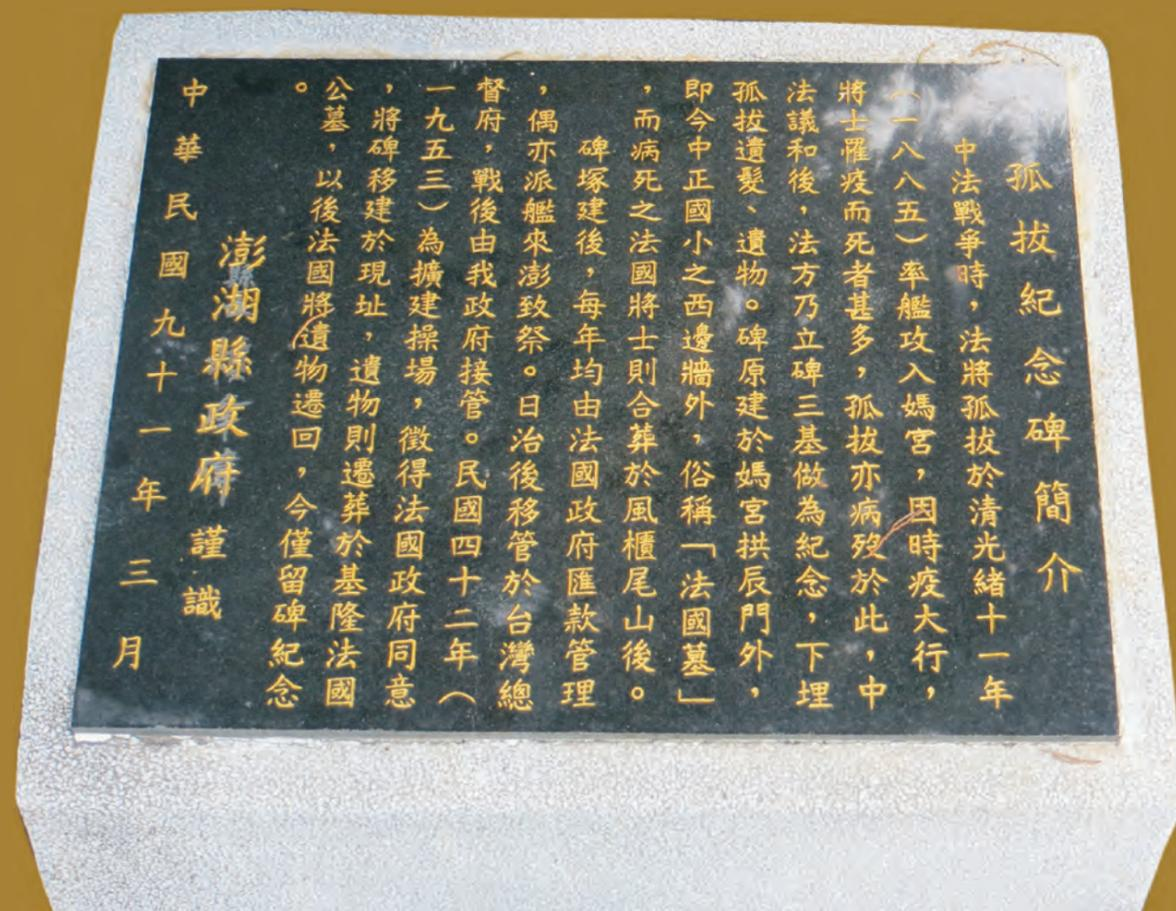 孤拔紀念碑簡介
中法戰爭時，法將孤拔於清光緒十一年
（一八八五）率艦攻入媽宮，因時疫大行，
將士罹疫而死者甚多，孤拔亦病歿於此，中
法議和後，法方乃立碑三基做為紀念，下埋
孤拔遺髮、遺物。碑原建於媽宮拱辰門外，
即今中正國小之西邊牆外，俗稱「法國墓」
，而病死之法國將士則合葬於風櫃尾山後。
碑塚建後，每年均由法國政府匯款管理
，偶亦派艦來澎致祭。日治後移管於台灣總
督府，戰後由我政府接管。民國四十二年（
一九五三）為擴建操場，徵得法國政府同意
，將碑移建於現址，遺物則遷葬於基隆法國
公墓，以後法國將遺物遷回，今僅留碑紀念
。
澎湖縣政府謹識
中華民國九十一年三月